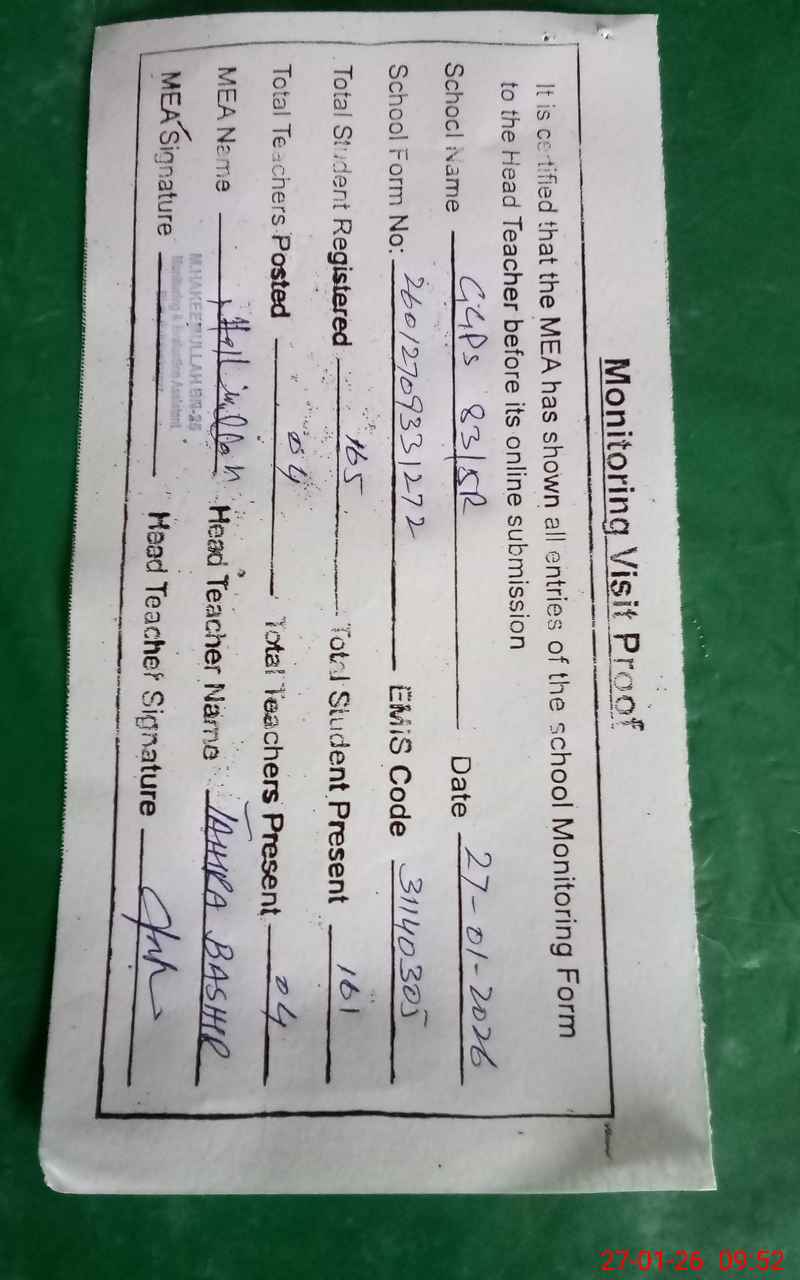 Monitoring Visit Proof
It is certified that the MEA has shown all entries of the school Monitoring Form
to the Head Teacher before its online submission
School Name GGPS 83/5R Date 27-01-2026
School Form No: 26012709331272 EMIS Code 31140305
Total Student Registered 165 Total Student Present 161
Total Teachers Posted 04 Total Teachers Present 04
MEA Name Head Teacher Name TAHIRA BASHIR
M.HAKEEMULLAH
Monitoring & Evaluation Assistant
MEA Signature Head Teacher Signature
27-01-26 09:52